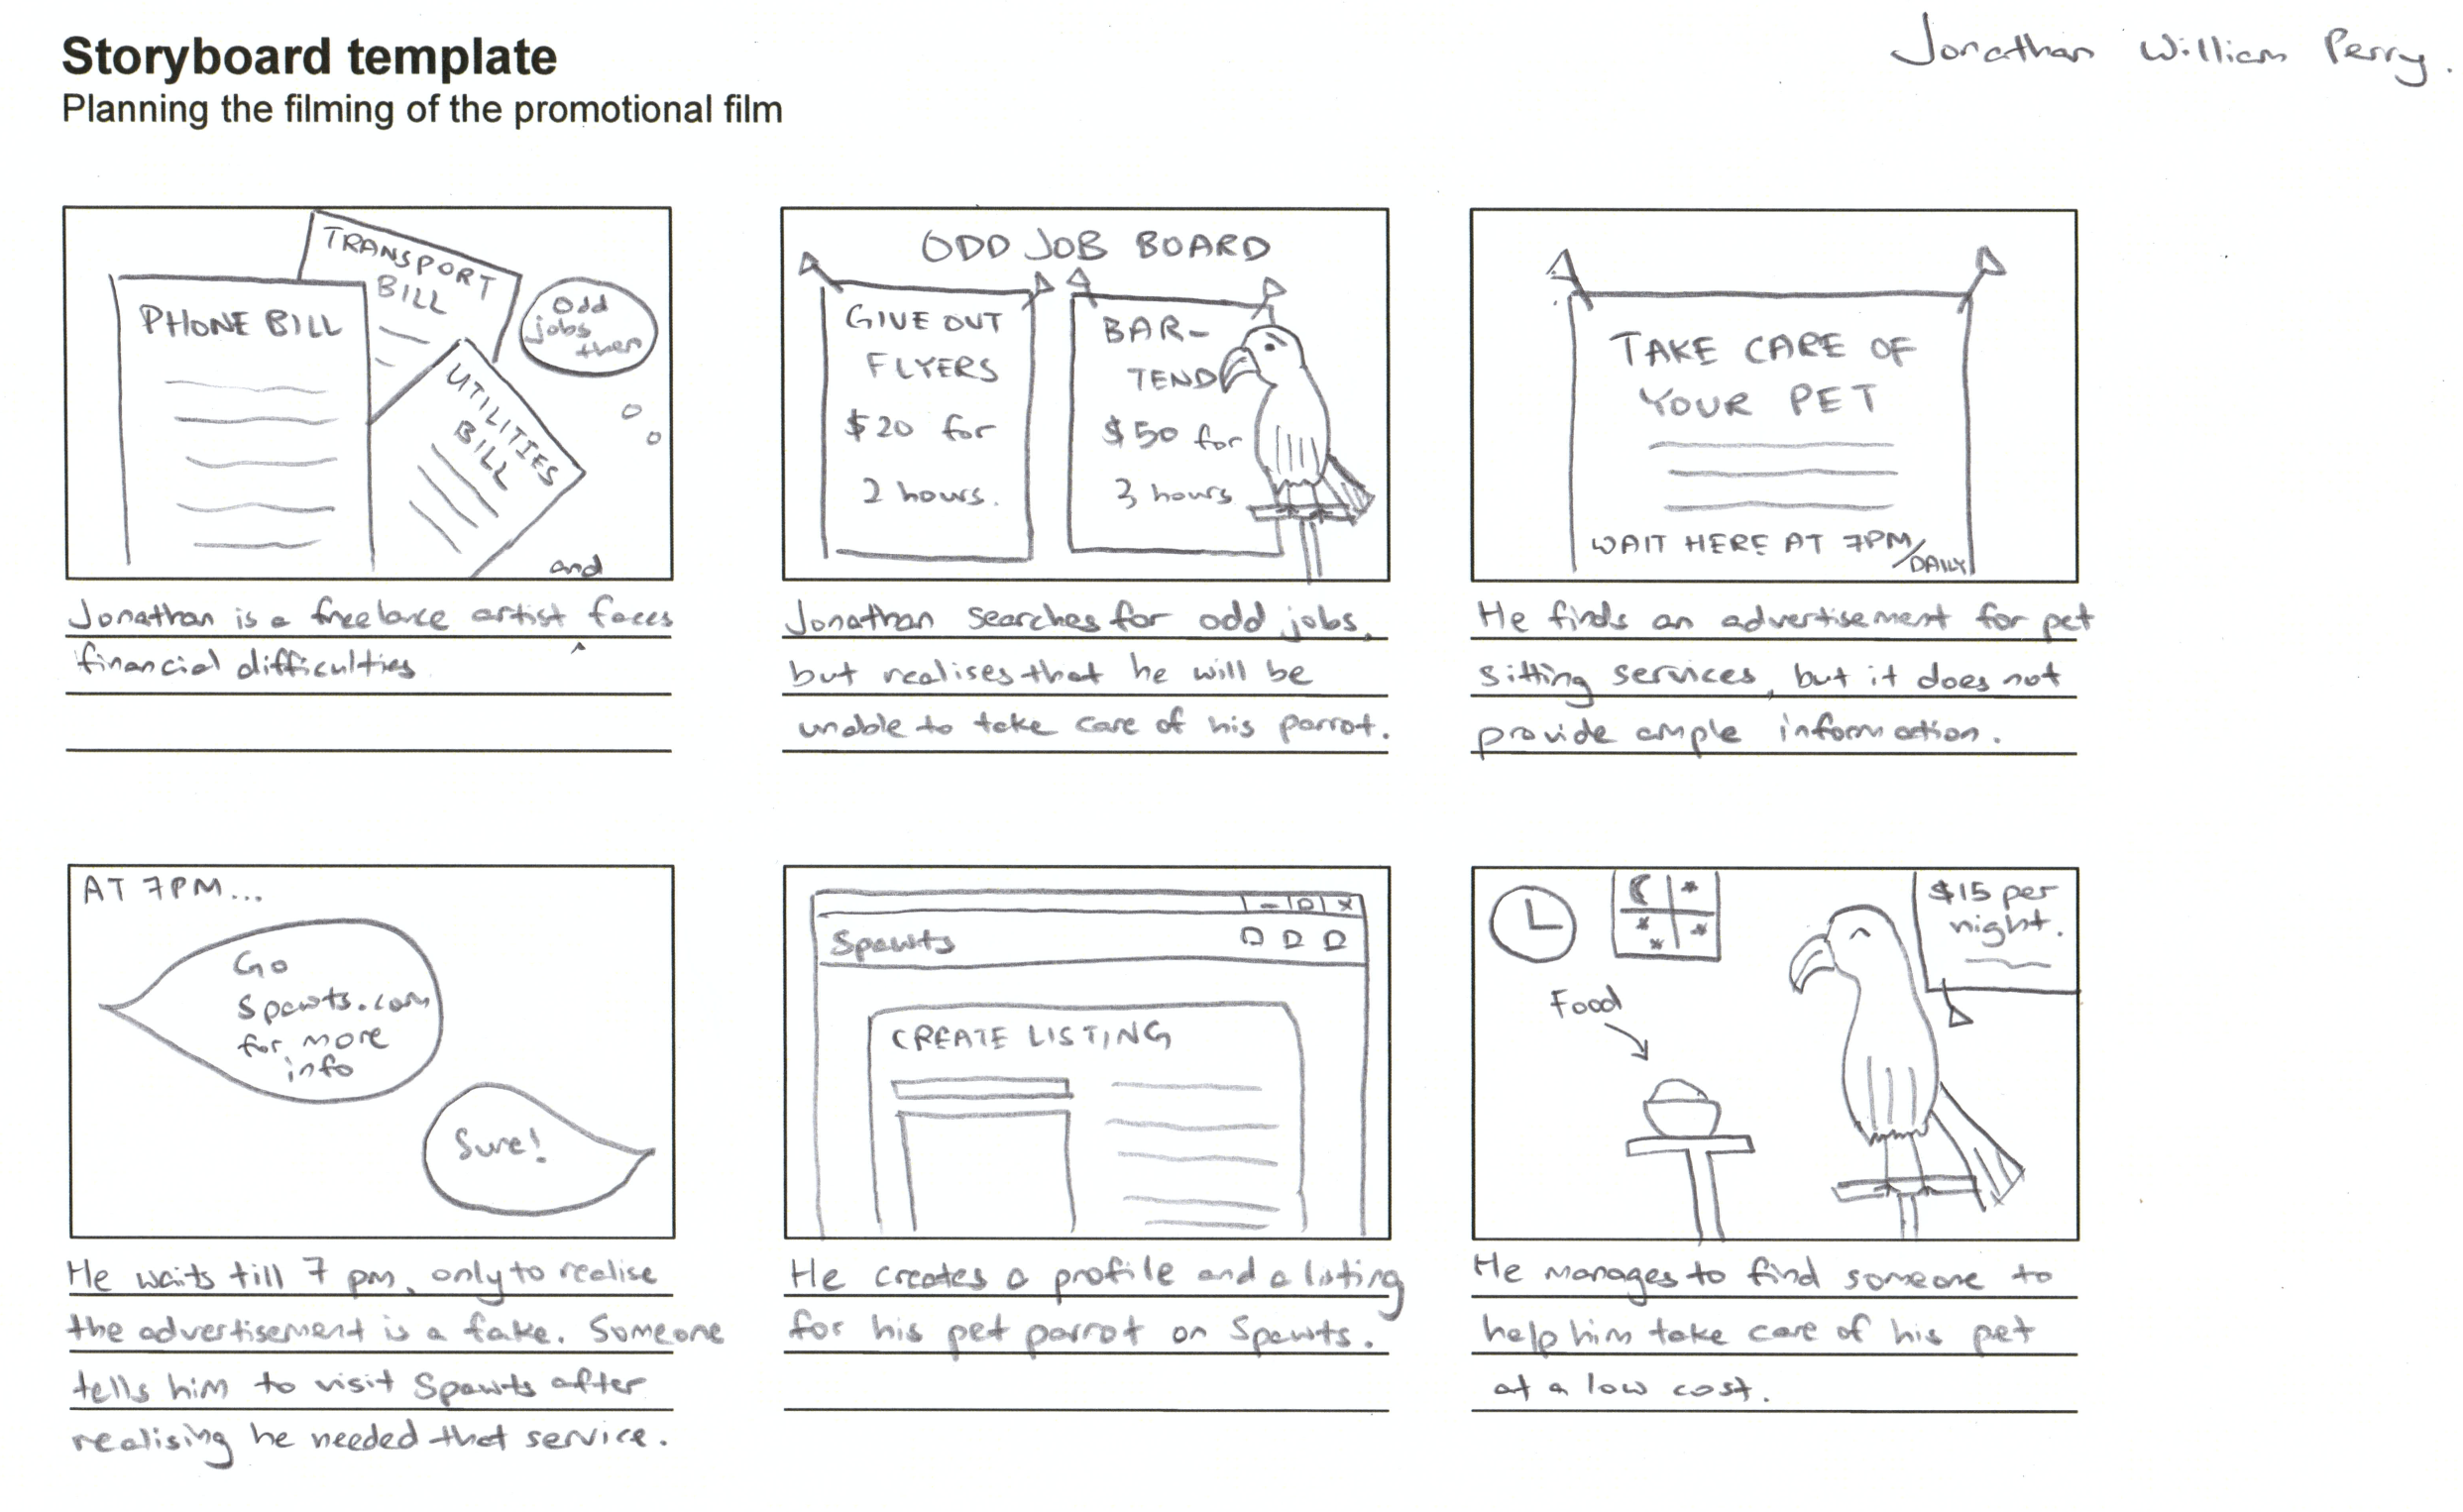 Storyboard template
Planning the filming of the promotional film
Jonathan William Perry.
TRANSPORT
BILL
PHONE BILL
UTILITIES
BILL
Odd
jobs
then
and
Jonathan is a freelance artist ^ faces
financial difficulties
ODD JOB BOARD
GIVE OUT
FLYERS
$20 for
2 hours.
BAR-
TEND
$50 for
3 hours
Jonathan searches for odd jobs,
but realises that he will be
unable to take care of his parrot.
TAKE CARE OF
YOUR PET
WAIT HERE AT 7PM/DAILY
He finds an advertisement for pet
sitting services, but it does not
provide ample information.
AT 7PM...
Go
spawts.com
for more
info
Sure!
He waits till 7 pm, only to realise
the advertisement is a fake. Someone
tells him to visit Spawts after
realising he needed that service.
Spawts
CREATE LISTING
He creates a profile and a listing
for his pet parrot on Spawts.
$15 per
night.
Food
He manages to find someone to
help him take care of his pet
at a low cost.